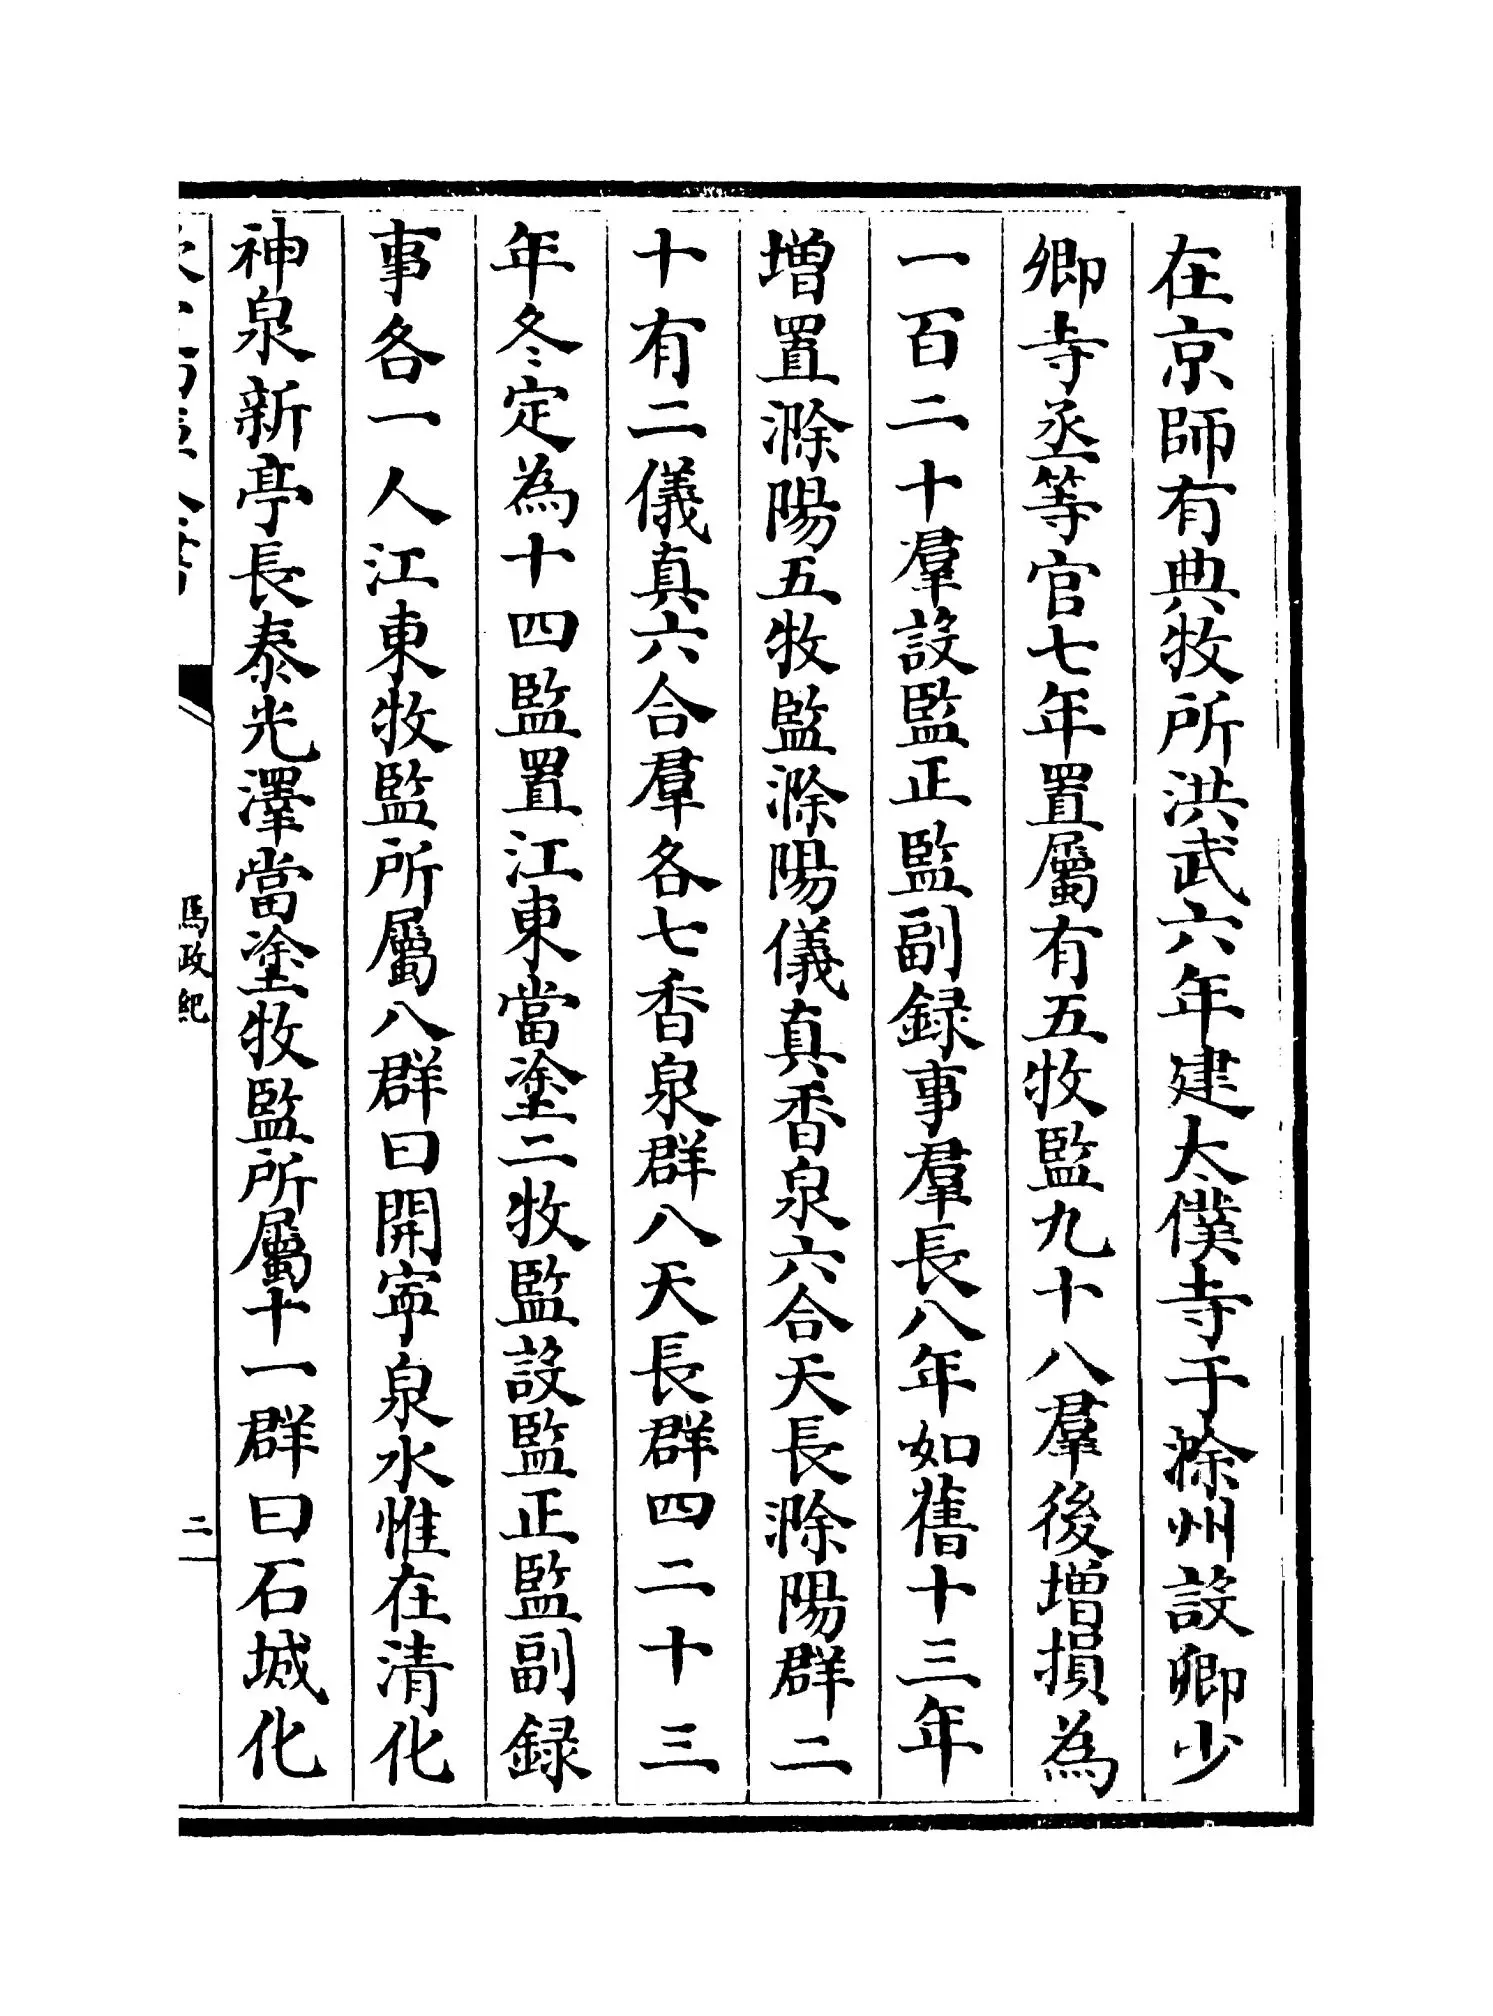 在京師有典牧所洪武六年建太僕寺于滁州設卿少
卿寺丞等官七年置屬有五牧監九十八羣後增損為
一百二十羣設監正監副録事羣長八年如舊十三年
增置滁陽五牧監滁陽儀真香泉六合天長滁陽群二
十有二儀真六合羣各七香泉群八天長群四二十三
年冬定為十四監置江東當塗二牧監設監正監副録
事各一人江東牧監所屬八群曰開寜泉水惟在清化
神泉新亭長泰光澤當塗牧監所屬十一群曰石城化
馬政紀
二